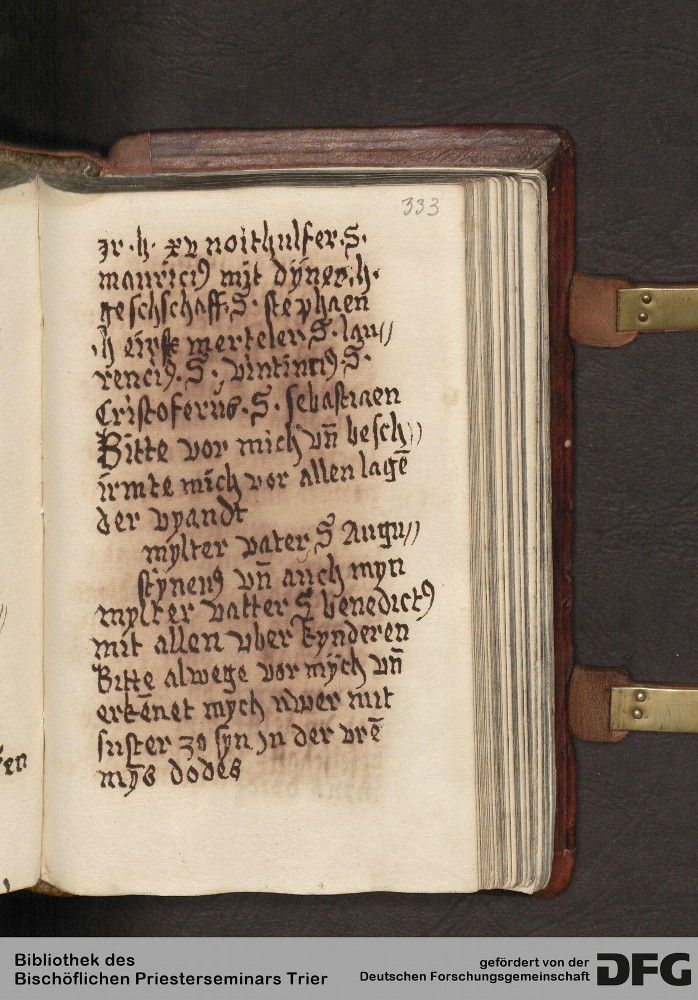 333
jr · h · xv noithulfer · S ·
mauriciꝰ mit dyner · h ·
geschschaff · S · stephaen
· h eirste merteler · S · lau//
renciꝰ · S · vintinciꝰ · S ·
Cristoferus · S · sebastiaen
Bitte vor mich vn̄ besch//
irmte mich vor allen lagē
der vyandt
mylter vater S Augu//
stynenꝰ vn̄ auch myn
mylter vatter S benedictꝰ
mit allen vber kynderen
Bitte alwege vor mych vn̄
erkēnet mych uwer mit
suster zo syn jn der vrē
mȳs dodes
en
Bibliothek des
Bischöflichen Priesterseminars Trier
gefördert von der
Deutschen Forschungsgemeinschaft
DFG